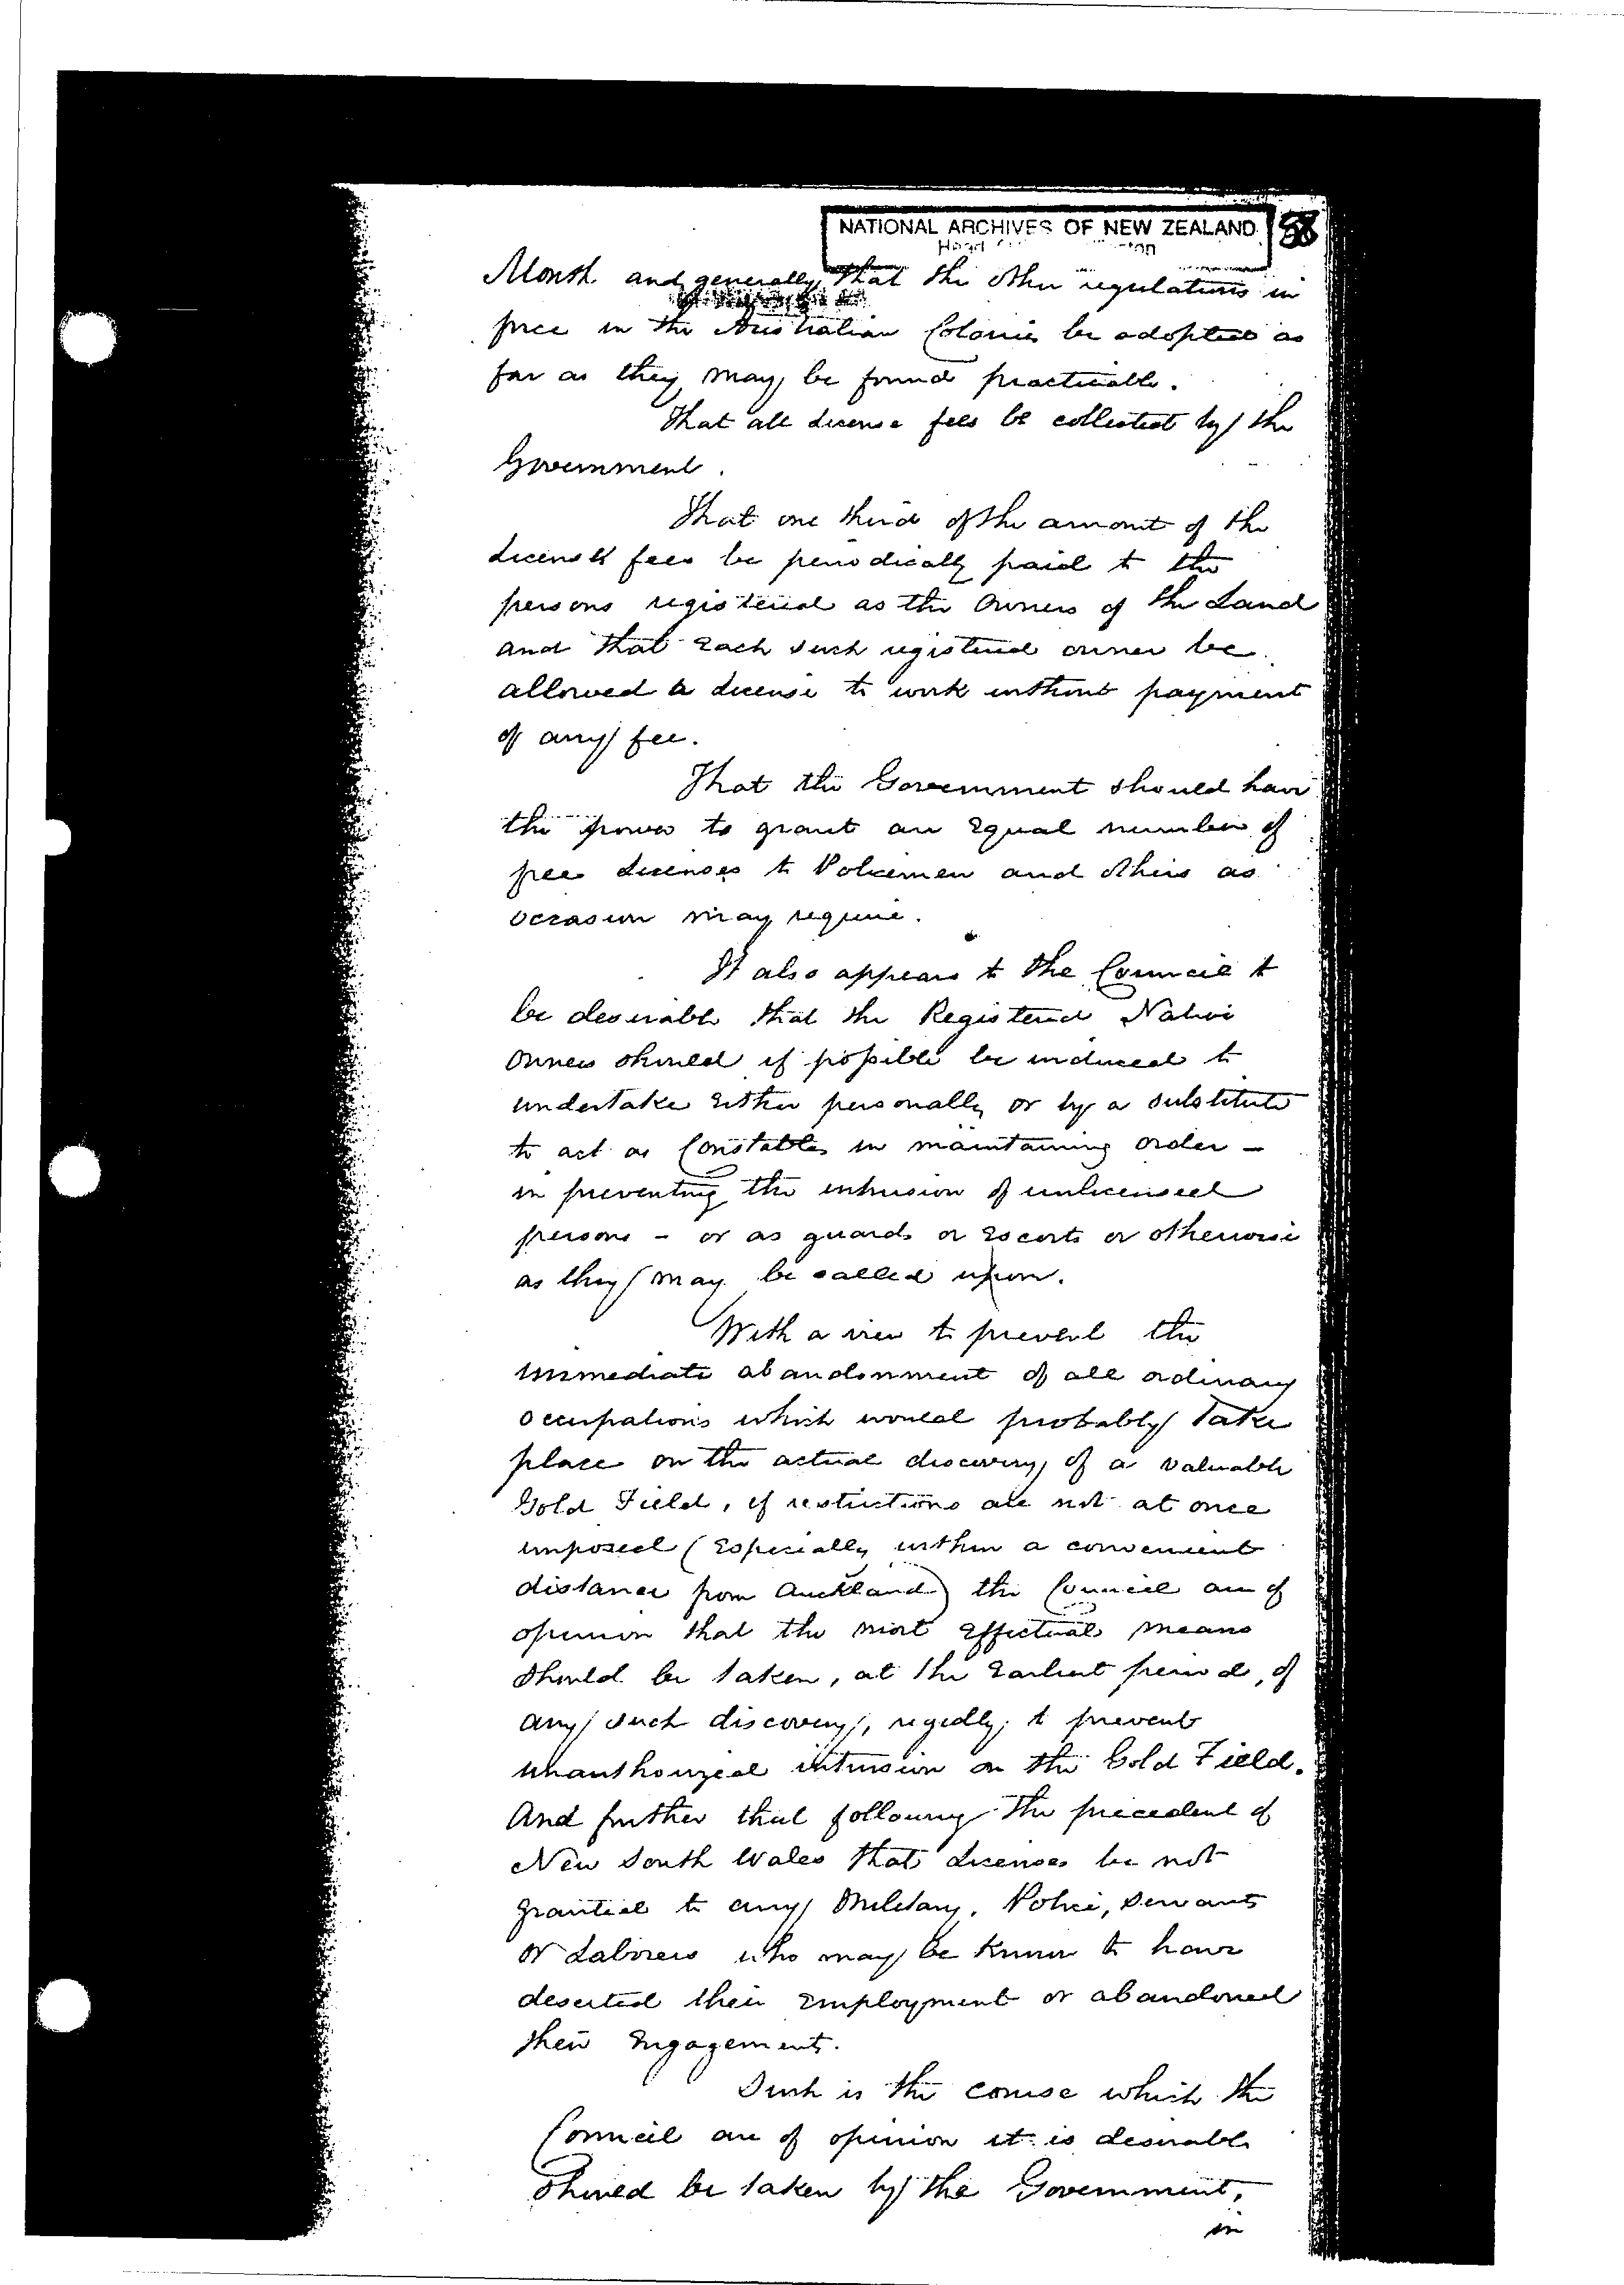 NATIONAL ARCHIVES OF NEW ZEALAND
Month and generally that the other regulations in
force in the Australian Colonies be adopted as
far as they may be found practicable.
That all license fees be collected by the
Government.
That one third of the amount of the
License fees be periodically paid to the
persons registered as the Owners of the Land
and that Each such registered owner be
allowed a license to work without payment
of any fee.
That the Government should have
the power to grant an Equal number of
free licenses to Policemen and others as
occasion may require.
It also appears to the Council to
be desirable that the Registered Native
Owners should if possible be induced to
undertake Either personally or by a substitute
to act as Constables in maintaining order -
in preventing the intrusion of unlicensed
persons - or as guards or Escorts or otherwise
as they may be called upon.
With a view to prevent the
immediate abandonment of all ordinary
occupations which would probably take
place on the actual discovery of a valuable
Gold Field, if restrictions are not at once
imposed (Especially within a convenient
distance from Auckland) the Council are of
opinion that the most Effectual means
should be taken, at the Earliest period, of
any such discovery, rigidly to prevent
unauthorized intrusion on the Gold Field.
And further that following the precedent of
New South Wales that licenses be not
granted to any Military, Police, Servants
or Laborers who may be known to have
deserted their Employment or abandoned
their Engagements.
Such is the course which the
Council are of opinion it is desirable
should be taken by the Government,
in